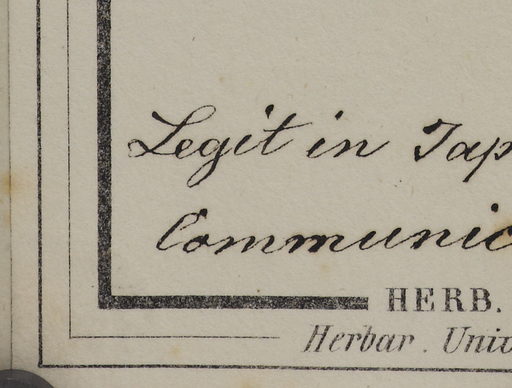 Legit in Jap
Communic
HERB.
Herbar. Univ